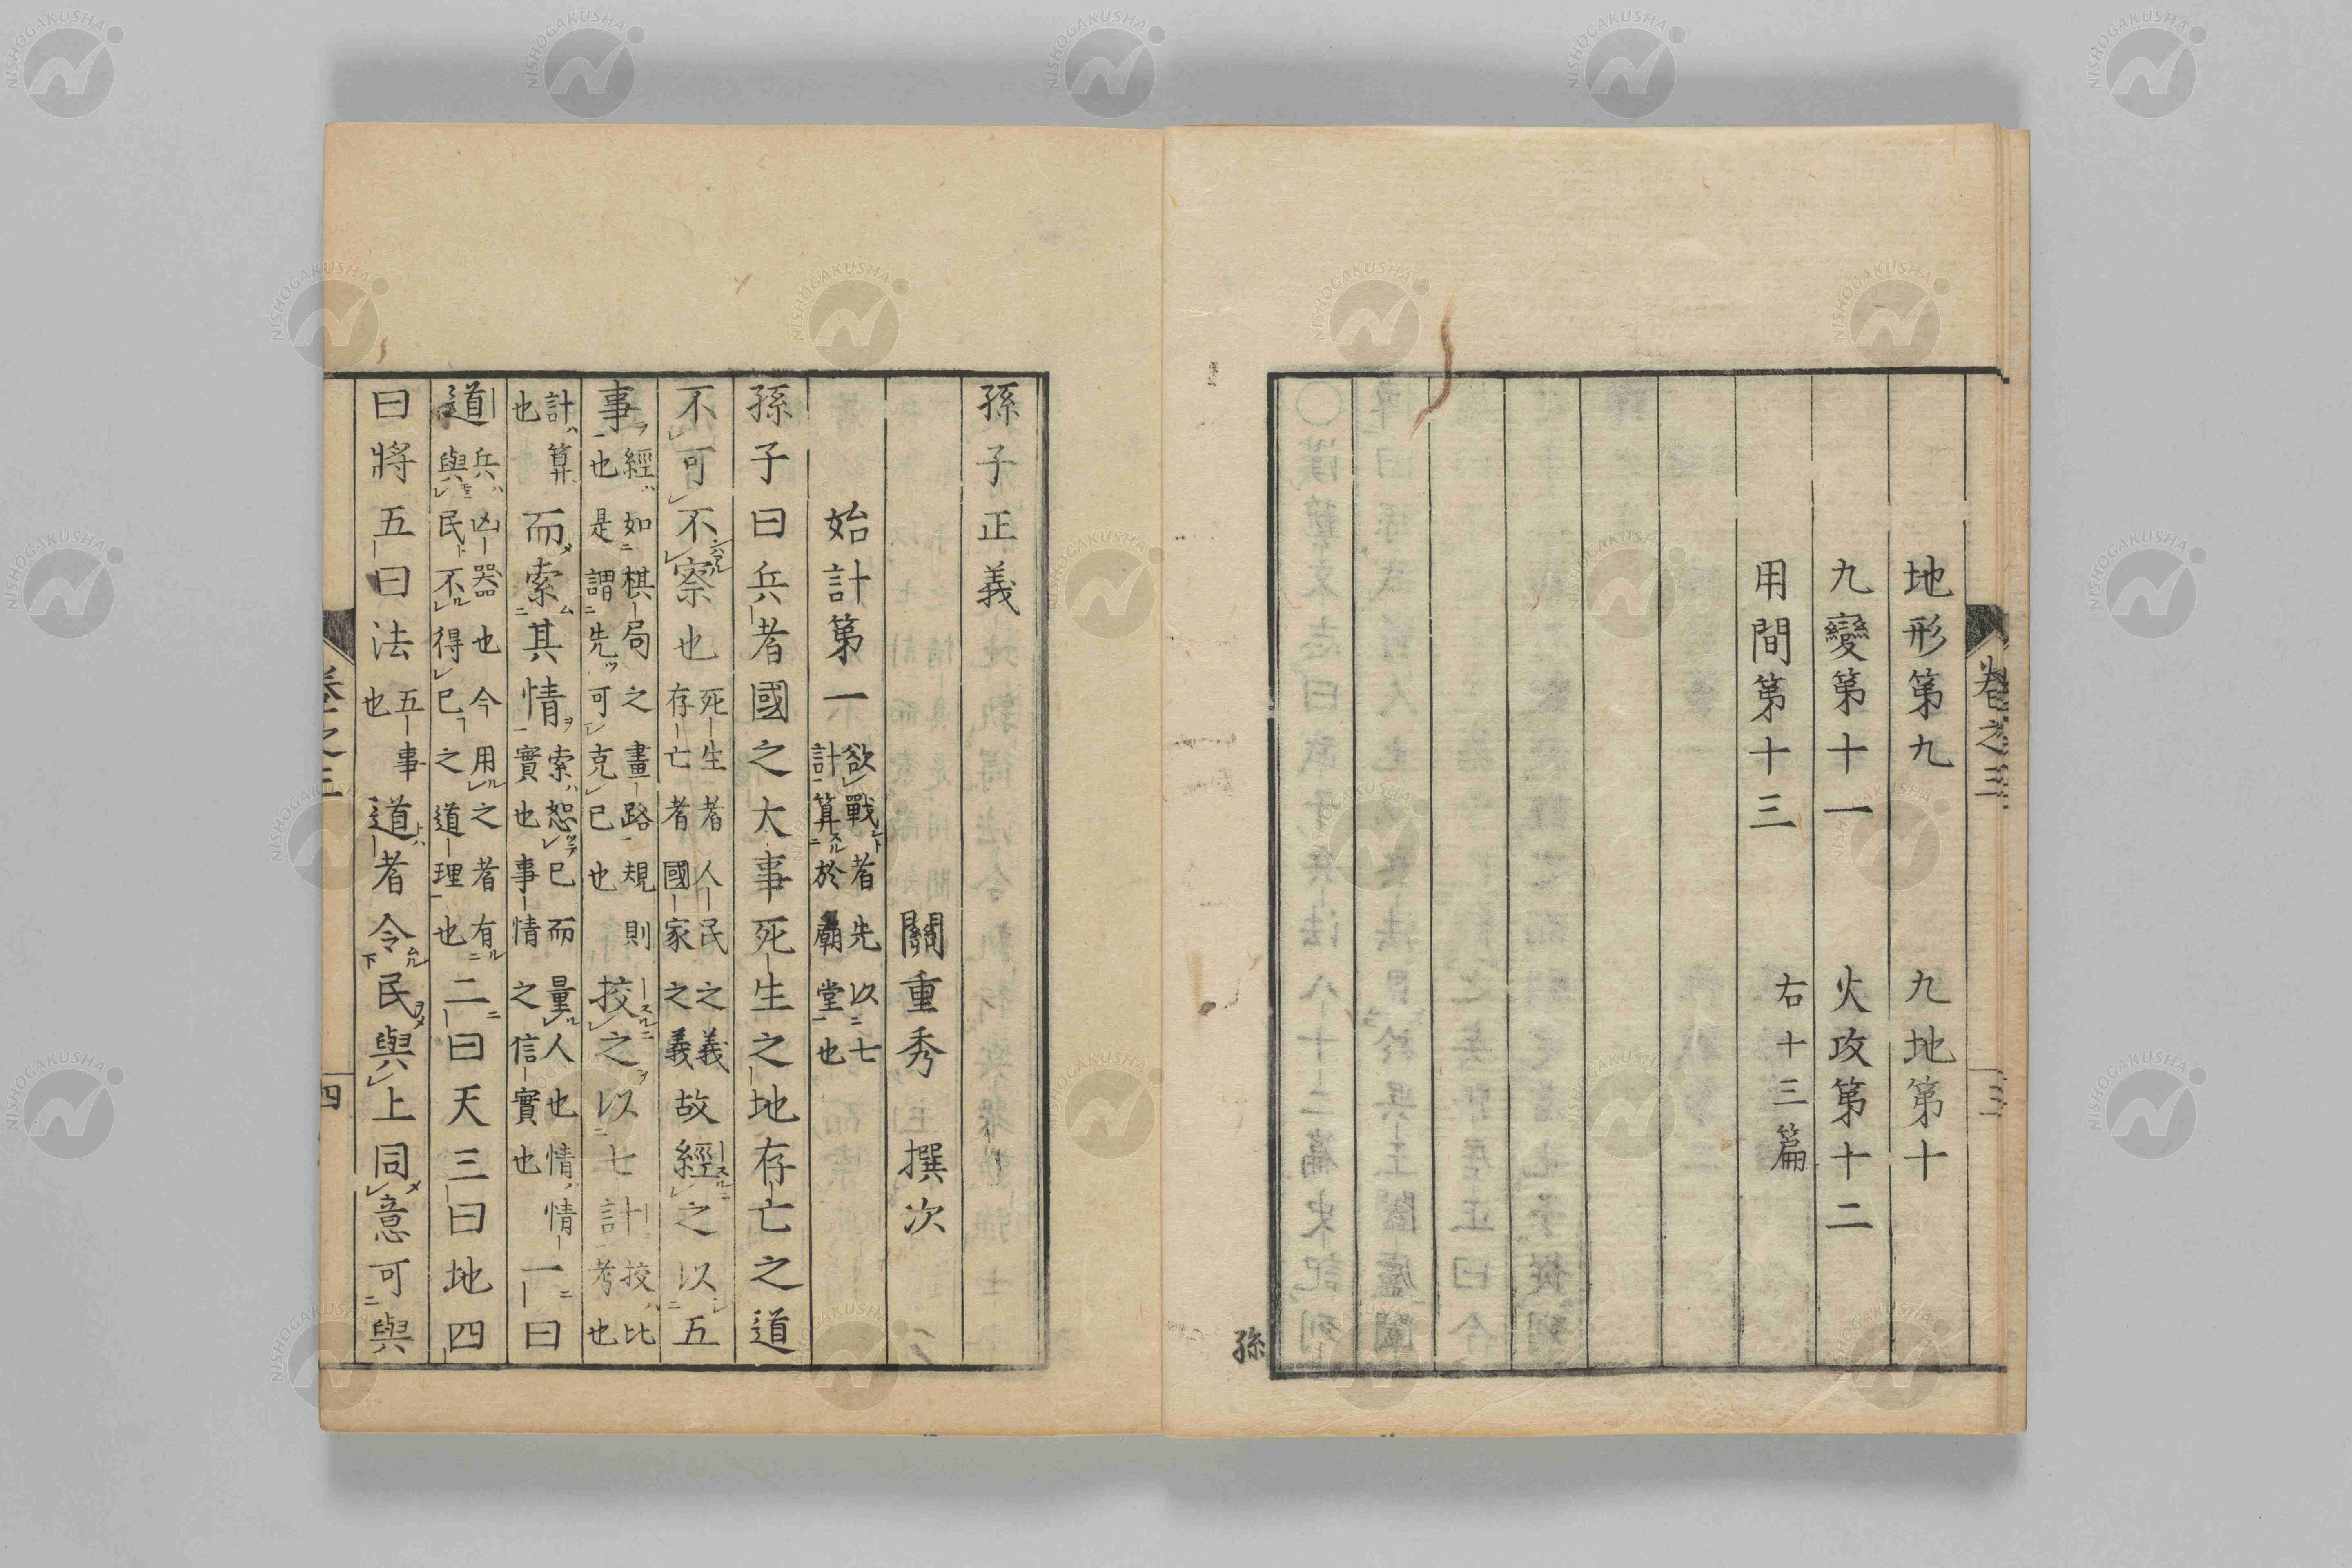 卷之三
三
地形第九　九地第十
九變第十一　火攻第十二
用間第十三　右十三篇
孫
孫子正義
關重秀　撰次
始計第一　欲戰者先以七計算於廟堂也
孫子曰兵者國之大事死生之地存亡之道
不可不察也　死生者人民之義存亡者國家之義　故經之以五
事　經如棋局之畫路規則也是謂先可克已也　挍之以七計　挍比考也
計算也　而索其情　索恕已而量人也情情實也事情之信實也　一曰
道　兵凶器也今用之者有與民不得已之道理也　二曰天三曰地四
曰將五曰法　五事也　道者令民與上同意可與
卷之三
四
NISHOGAKUSHA